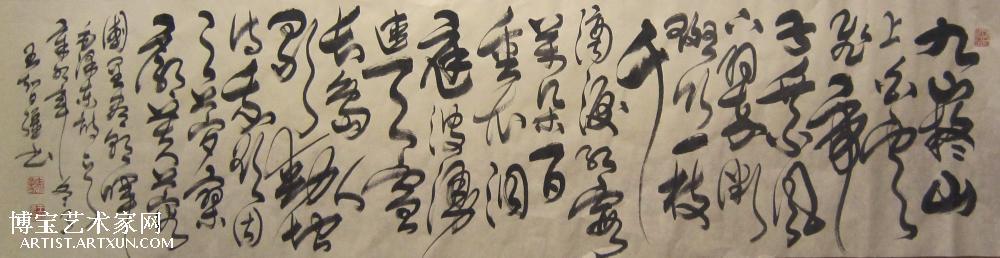 九嶷山
上白雲
飛帝
子乘風
下翠微
斑竹一枝
千
滴淚紅霞
萬朵百
重衣洞
庭波涌
連天雪
長島人
歌動地
詩我欲因
之夢寥
廓芙蓉
國里盡朝暉
毛澤東
王
書
博宝艺术家网
ARTIST.ARTXUN.COM